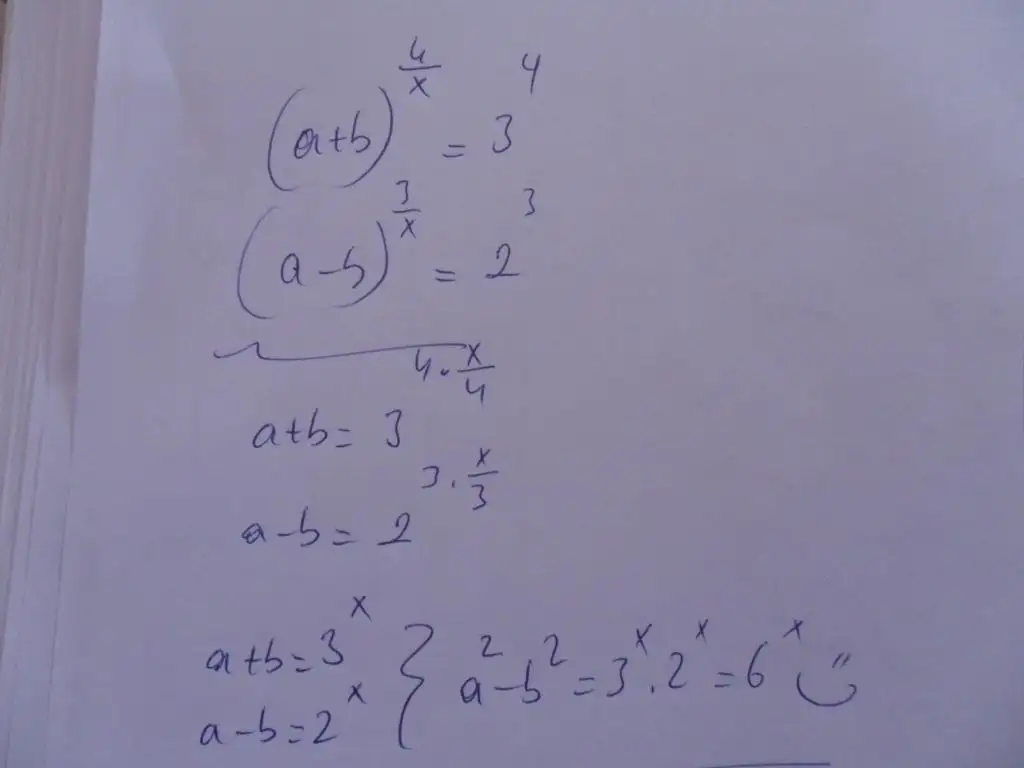 (a+b)^(4/x) = 3^4
(a-b)^(3/x) = 2^3
a+b = 3^(4·x/4)
a-b = 2^(3·x/3)
a+b=3^x } a^2-b^2 = 3^x . 2^x = 6^x
a-b=2^x